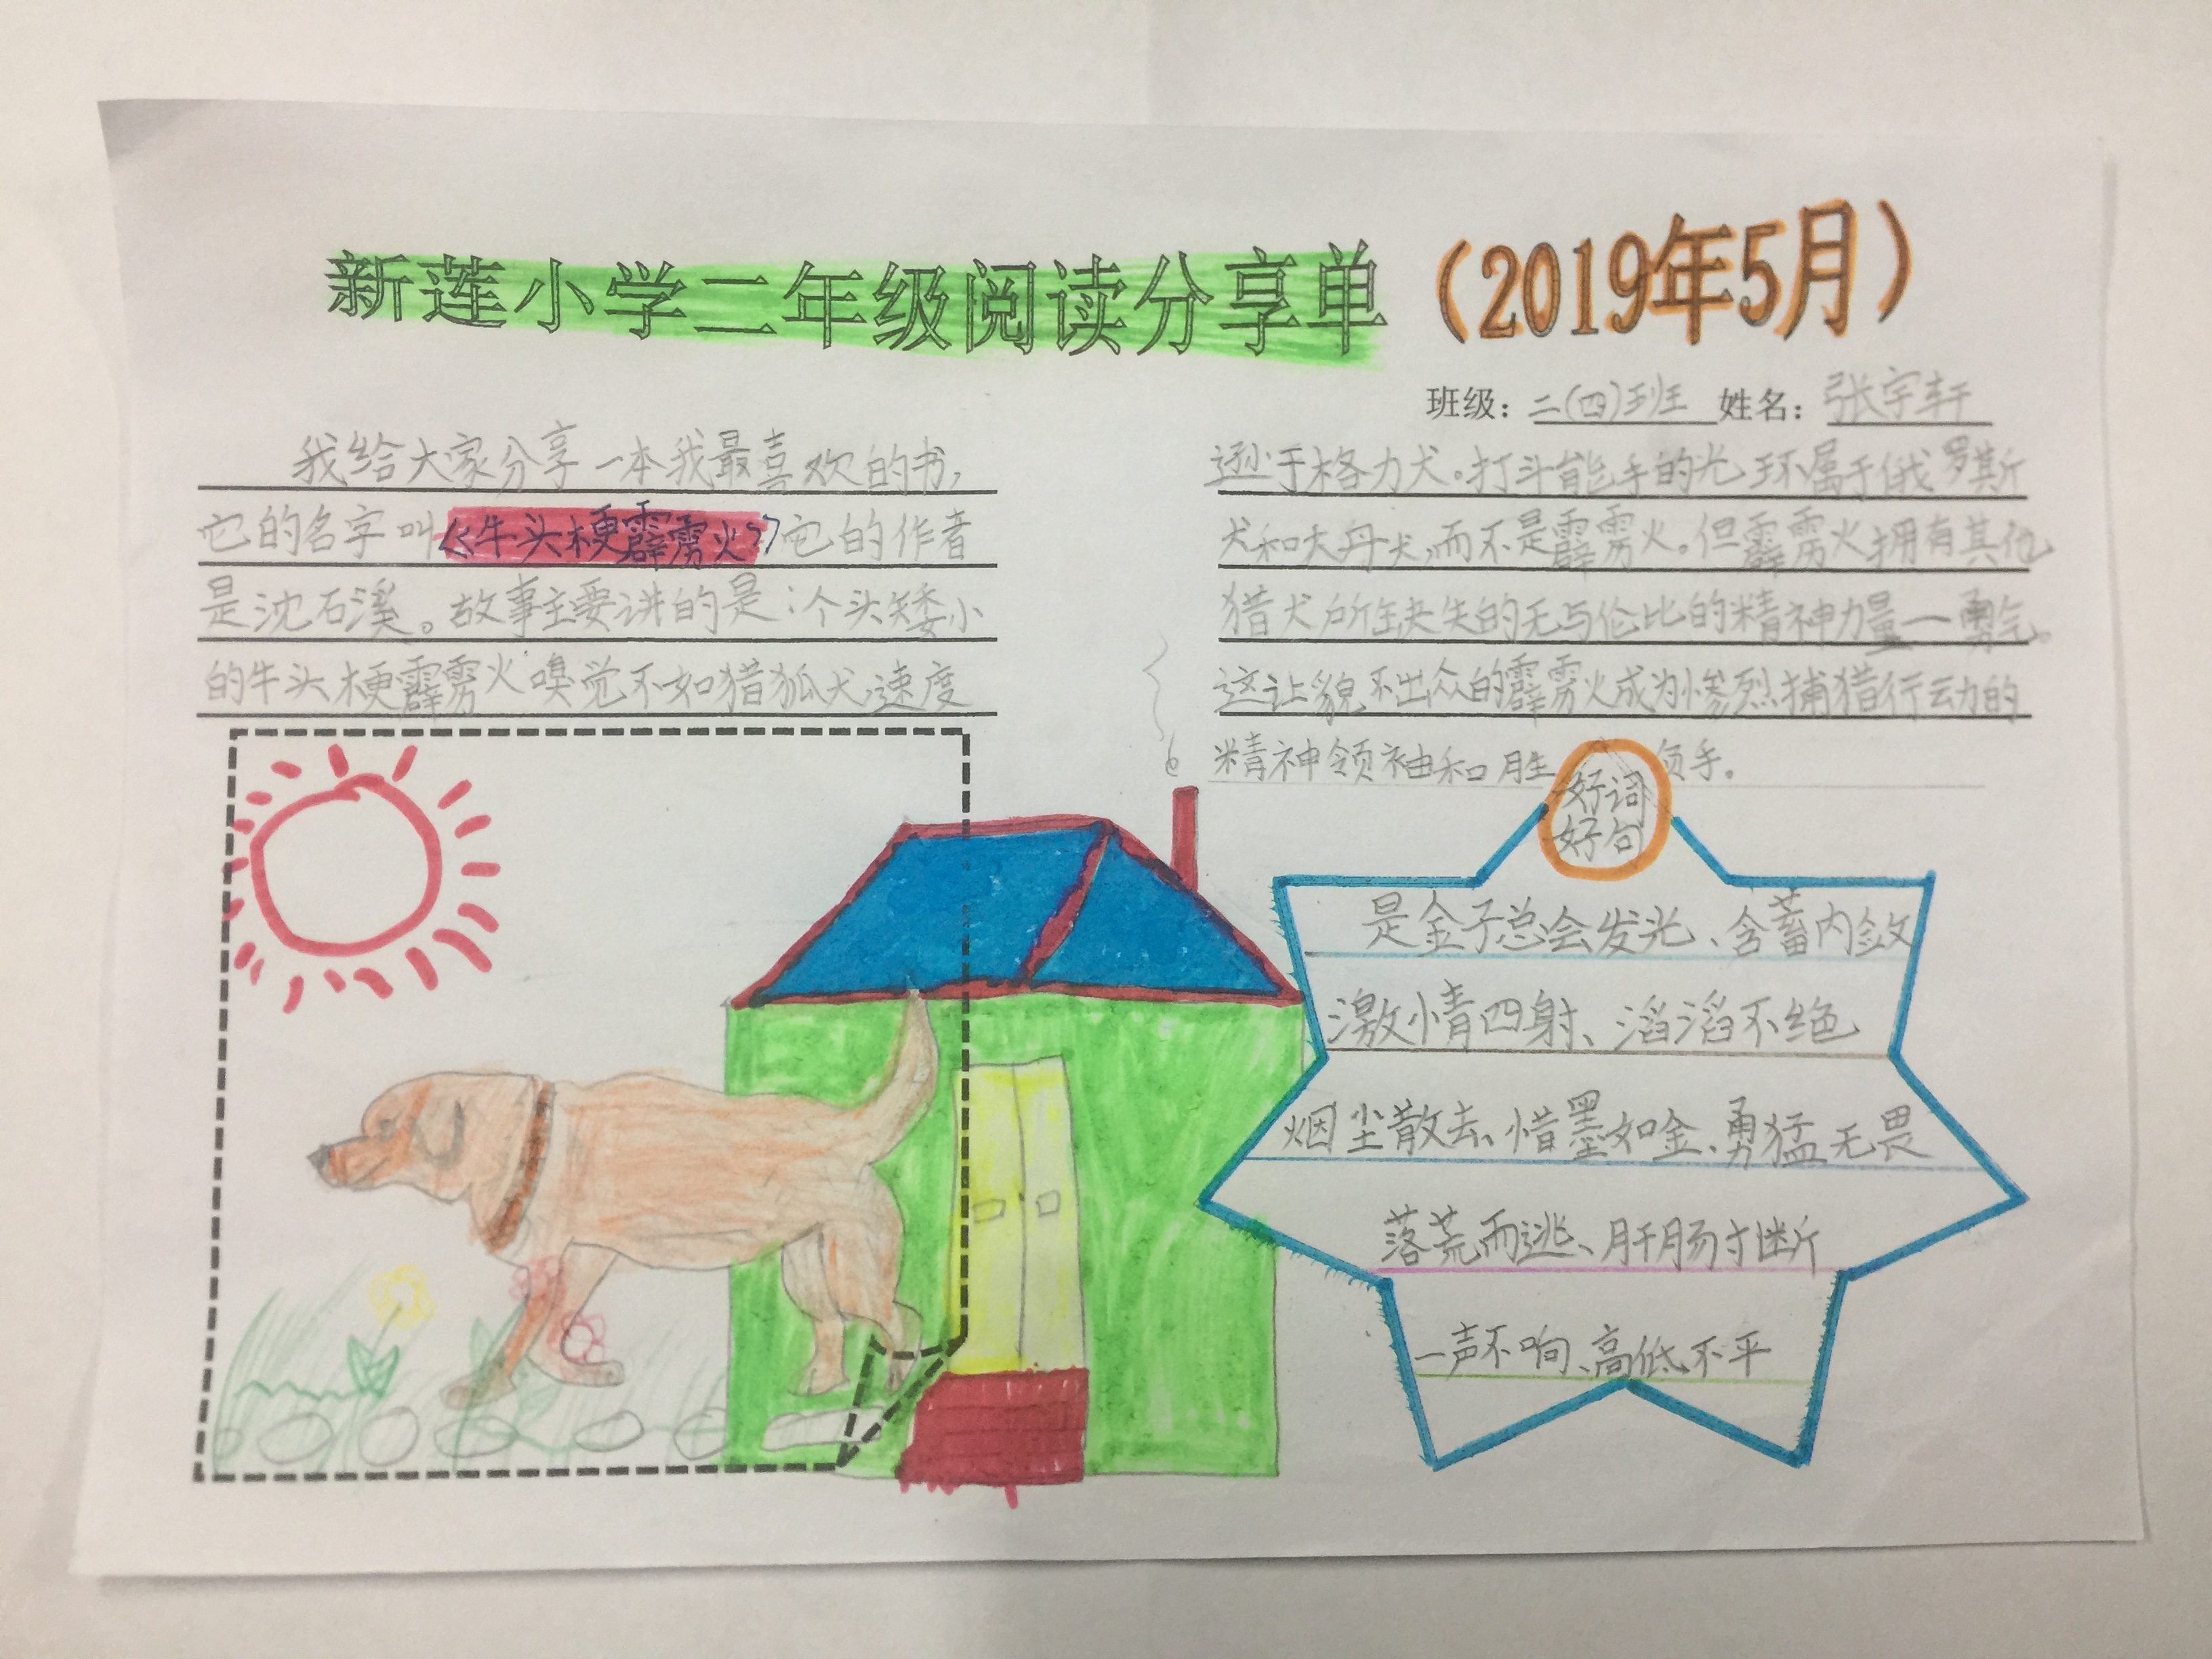 新莲小学二年级阅读分享单（2019年5月）
班级：二(四)班 姓名：张宇轩
我给大家分享一本我最喜欢的书,
它的名字叫《牛头梗霹雳火》它的作者
是沈石溪。故事主要讲的是：个头矮小
的牛头梗霹雳火嗅觉不如猎狐犬,速度
逊于格力犬。打斗能手的光环属于俄罗斯
犬和大丹犬,而不是霹雳火。但霹雳火拥有其他
猎犬所缺失的无与伦比的精神力量—勇气。
这让貌不出众的霹雳火成为惨烈捕猎行动的
精神领袖和胜负手。
好词
好句
是金子总会发光、含蓄内敛
激情四射、滔滔不绝
烟尘散去、惜墨如金、勇猛无畏
落荒而逃、肝肠寸断
一声不响、高低不平